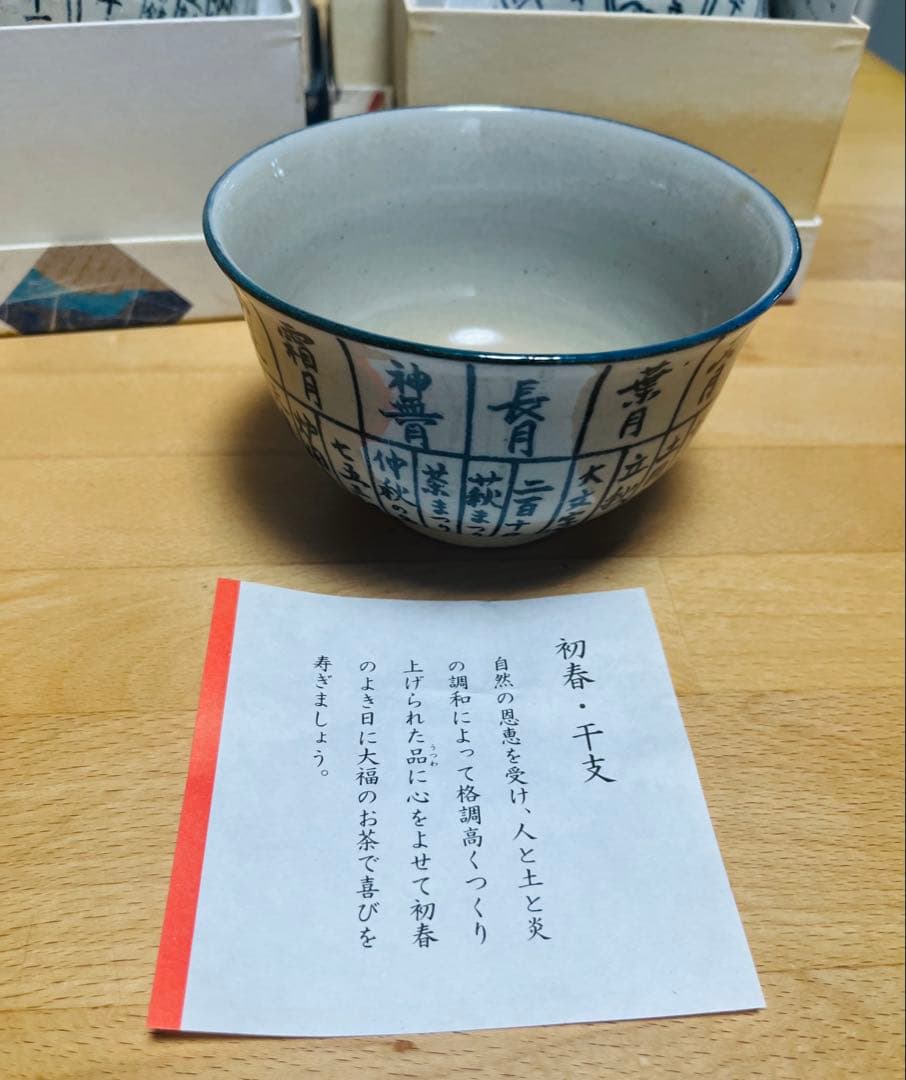 霜月
神無月
長月
葉月
七五三
仲秋の
茶まつり
萩まつ
二百十
大
立
土
初春・干支
自然の恩恵を受け、人と土と炎
の調和によって格調高くつくり
上げられた品に心をよせて初春
うつわ
のよき日に大福のお茶で喜びを
寿ぎましょう。